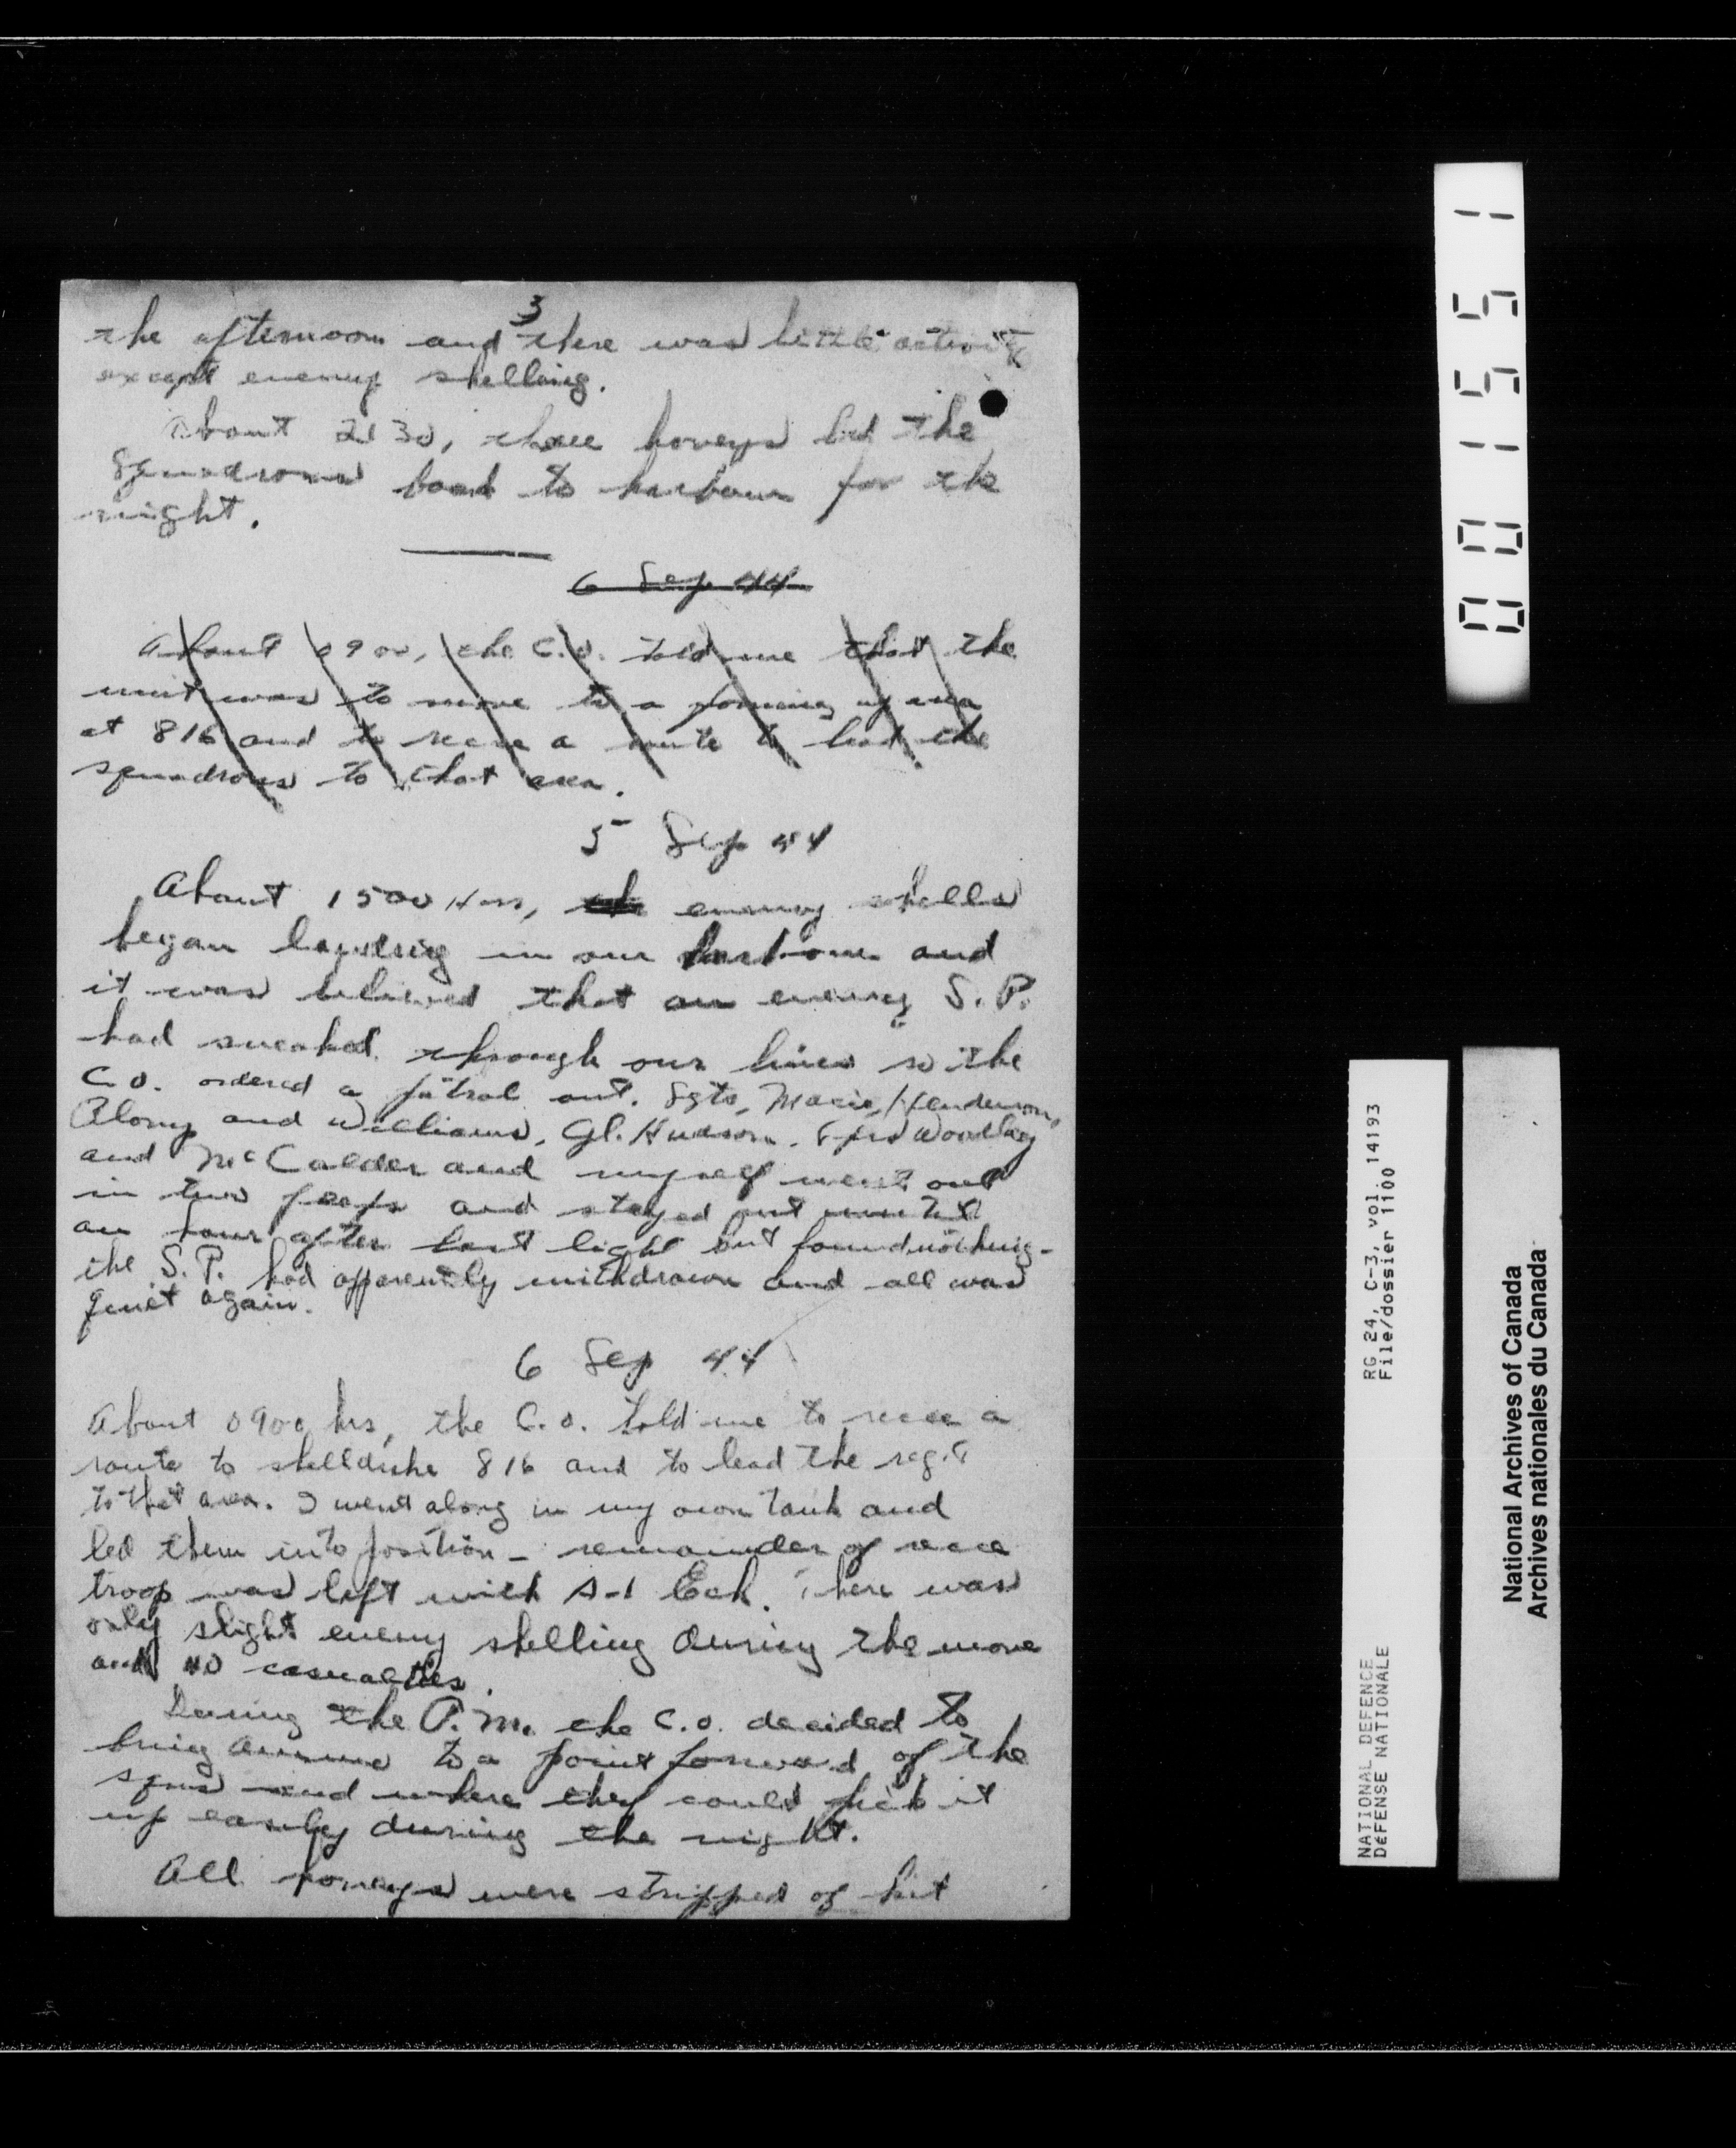 3
the afternoon and there was little activity
except enemy shelling.
About 2130, three honeys led the
Squadrons back to harbour for the
night.
6 Sep 44
About 0900, the C.O. told me that the
unit was to move to a forming up area
at 816 and to recce a route & lead the
squadrons to that area.
5 Sep 44
About 1500 Hrs, the enemy shells
began landing in our harbour and
it was believed that an enemy S.P.
had sneaked through our lines so the
C.O. ordered a patrol out. Sgts, Macie, Henderson,
and Williams, Cpl. Hudson.
and McCalder and myself went out
in two jeeps and stayed out until
an hour after last light but found nothing -
the S.P. had apparently withdrawn and all was
quiet again.
6 Sep 44
About 0900 hrs, the C.O. told me to recce a
route to 816 and to lead the regt
to that area. I went along in my own tank and
led them into position - remainder of recce
troop was left with A-1 Ech. There was
only slight enemy shelling during the move
and no casualties.
During the P.M. the C.O. decided to
bring ammo to a point forward of the
sqns and where they could pick it
up easily during the night.
All honeys were stripped of kit
0001551
RG 24, C-3, vol. 14193
File/dossier 1100
NATIONAL DEFENCE
DÉFENSE NATIONALE
National Archives of Canada
Archives nationales du Canada